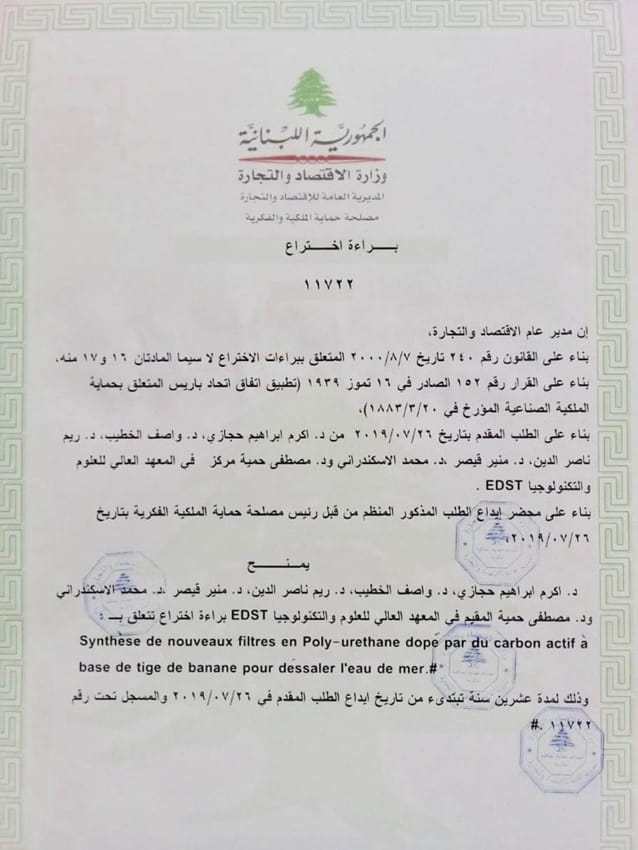 الجمهورية اللبنانية
وزارة الاقتصاد والتجارة
المديرية العامة للإقتصاد والتجارة
مصلحة حماية الملكية والفكرية
بـــراءة اخـــتراع
١١٧٢٢
إن مدير عام الاقتصاد والتجارة،
بناء على القانون رقم ٢٤٠ تاريخ ٢٠٠٠/٨/٧ المتعلق ببراءات الاختراع لا سيما المادتان ١٦ و١٧ منه،
بناء على القرار رقم ١٥٢ الصادر في ١٦ تموز ١٩٣٩ (تطبيق اتفاق اتحاد باريس المتعلق بحماية
الملكية الصناعية المؤرخ في ١٨٨٣/٣/٢٠)،
بناء على الطلب المقدم بتاريخ ٢٠١٩/٠٧/٢٦ من د. اكرم ابراهيم حجازي، د. واصف الخطيب، د. ريم
ناصر الدين، د. منير قيصر ،د. محمد الاسكندراني ود. مصطفى حمية مركز في المعهد العالي للعلوم
والتكنولوجيا EDST .
بناء على محضر إيداع الطلب المذكور المنظم من قبل رئيس مصلحة حماية الملكية الفكرية بتاريخ
٢٠١٩/٠٧/٢٦،
يمنـــح
د. اكرم ابراهيم حجازي، د. واصف الخطيب، د. ريم ناصر الدين، د. منير قيصر ،د. محمد الاسكندراني
ود. مصطفى حمية المقيم في المعهد العالي للعلوم والتكنولوجيا EDST براءة اختراع تتعلق بـــ :
Synthèse de nouveaux filtres en Poly-urethane dopé par du carbon actif à
base de tige de banane pour déssaler l'eau de mer.#
وذلك لمدة عشرين سنة تبتدىء من تاريخ ايداع الطلب المقدم في ٢٠١٩/٠٧/٢٦ والمسجل تحت رقم
١١٧٢٢ .#